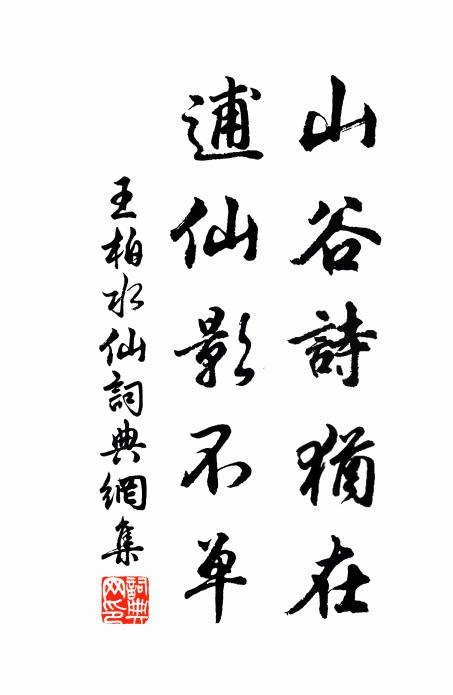 山谷詩猶在
逋仙影不单
王柏水仙詞典網集